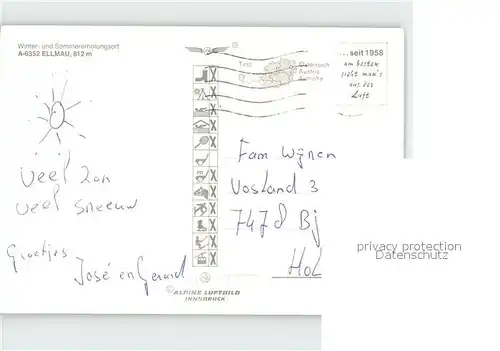 Winter- und Sommererholungsort
A-6352 ELLMAU, 812 m
Tirol
Österreich
Austria
Autriche
...seit 1958
am besten
sieht man's
aus der
Luft
Veel zon
veel sneeuw
Groetjes
José en Gerard
Fam Wijnen
Vosland 3
7478 Bj
Hol
privacy protection
Datenschutz
© ALPINE LUFTBILD
INNSBRUCK